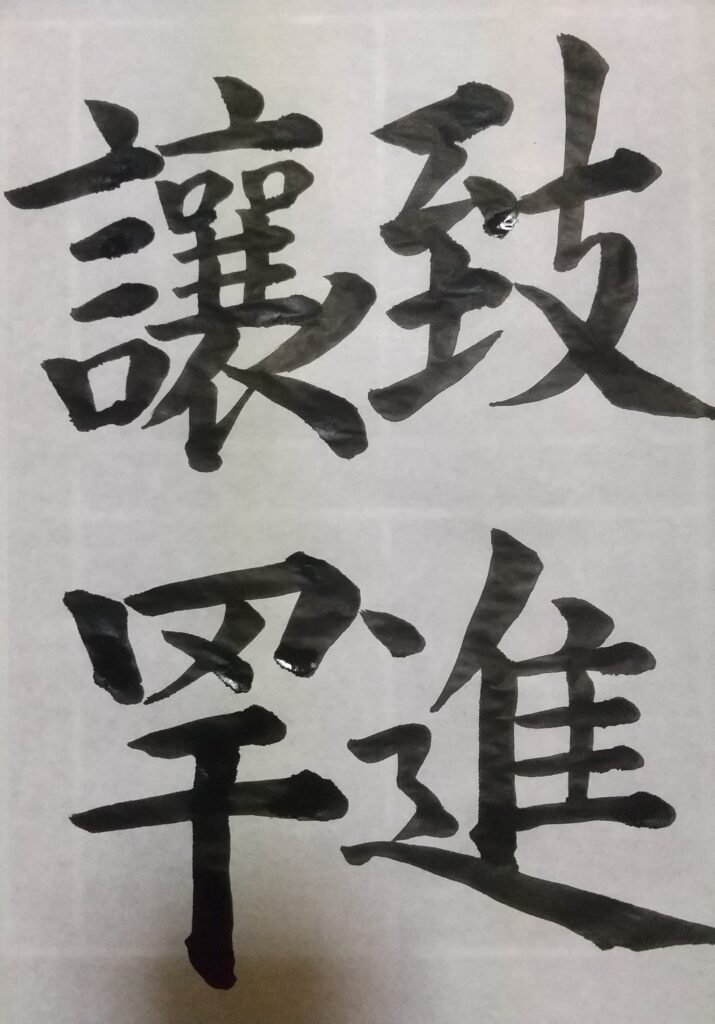 致進
讓罕